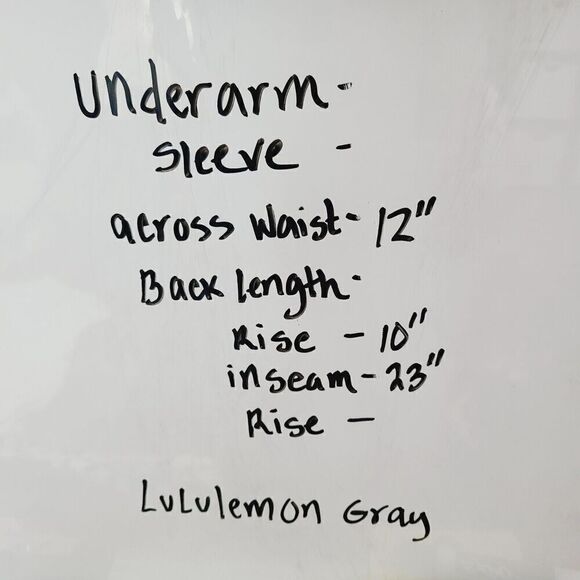 Underarm -
Sleeve -
across Waist - 12"
Back length -
Rise - 10"
inseam - 23"
Rise -
LuLulemon Gray